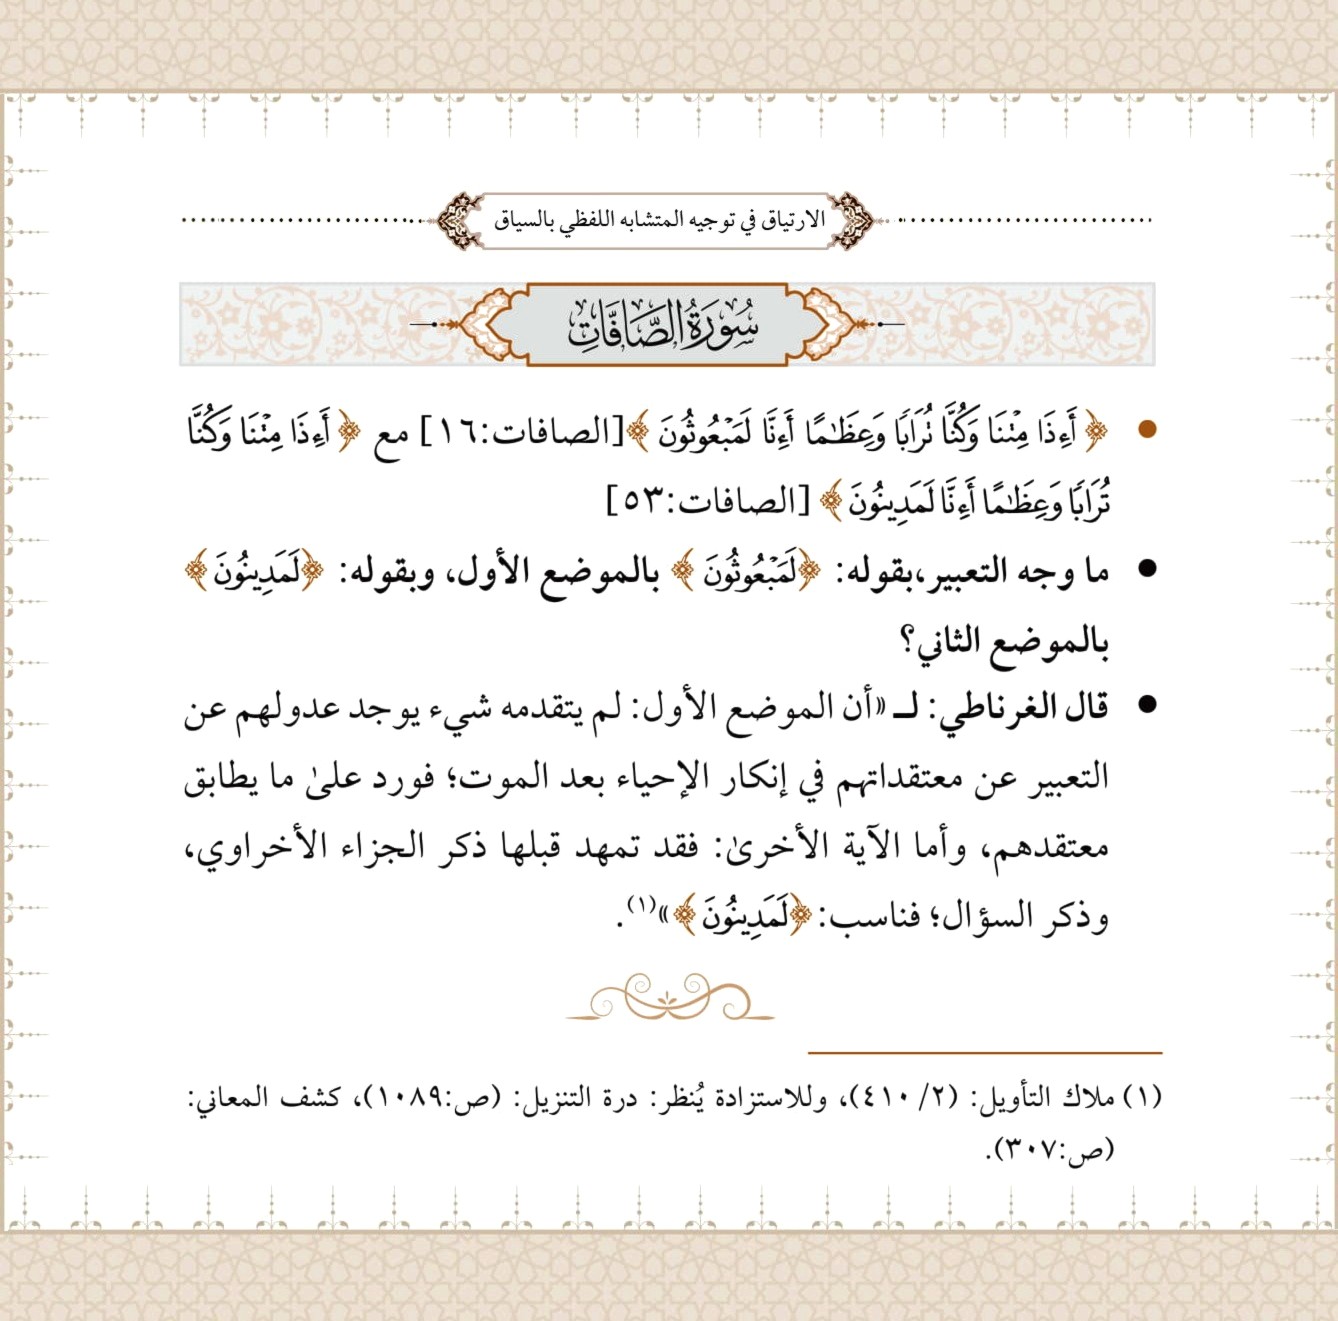 الارتياق في توجيه المتشابه اللفظي بالسياق
سُورَةُ الصَّافَّاتِ
• ﴿أَءِذَا مِتۡنَا وَكُنَّا تُرَابٗا وَعِظَٰمًا أَءِنَّا لَمَبۡعُوثُونَ﴾[الصافات:١٦] مع ﴿أَءِذَا مِتۡنَا وَكُنَّا
تُرَابٗا وَعِظَٰمًا أَءِنَّا لَمَدِينُونَ﴾ [الصافات:٥٣]
• ما وجه التعبير،بقوله: ﴿لَمَبۡعُوثُونَ﴾ بالموضع الأول، وبقوله: ﴿لَمَدِينُونَ﴾
بالموضع الثاني؟
• قال الغرناطي: لـ «أن الموضع الأول: لم يتقدمه شيء يوجد عدولهم عن
التعبير عن معتقداتهم في إنكار الإحياء بعد الموت؛ فورد علىٰ ما يطابق
معتقدهم، وأما الآية الأخرىٰ: فقد تمهد قبلها ذكر الجزاء الأخراوي،
وذكر السؤال؛ فناسب: ﴿لَمَدِينُونَ﴾»(١).
(١) ملاك التأويل: (٢/ ٤١٠)، وللاستزادة يُنظر: درة التنزيل: (ص:١٠٨٩)، كشف المعاني:
(ص:٣٠٧).